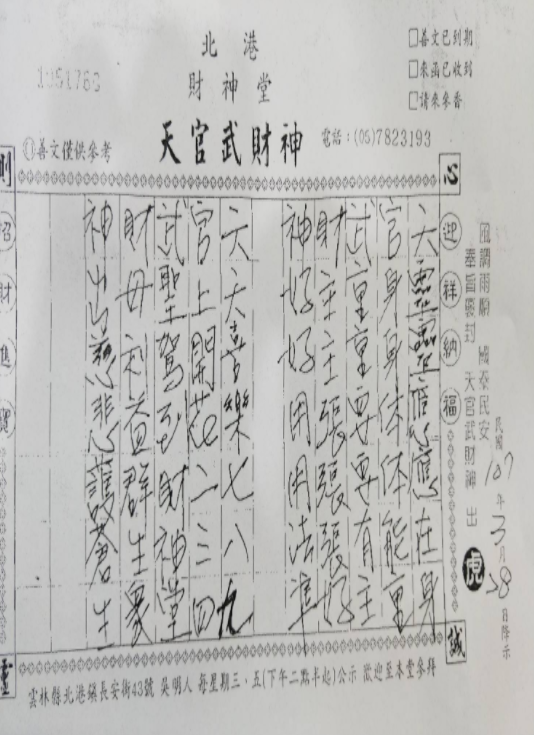 北港
財神堂
天官武財神
1051763
①善文僅供參考
電話：(05)7823193
□善文已到期
□來函已收到
□請來參香
心 誠 則 靈
迎祥納福
招財進寶
風調雨順 國泰民安
奉旨褒封 天官武財神 出 虎
民國107年3月28日降示
天靈靈應應在身
官身身体体能重
武重重要要有主
財主主張張張好
神好好用用法準
六六大喜樂七八九
宮上開花二三四
武聖駕到財神堂
財母利益群生眾
神出慈悲護蒼生
雲林縣北港鎮長安街43號 吳明人 每星期三、五(下午二點半起)公示 歡迎至本堂參拜